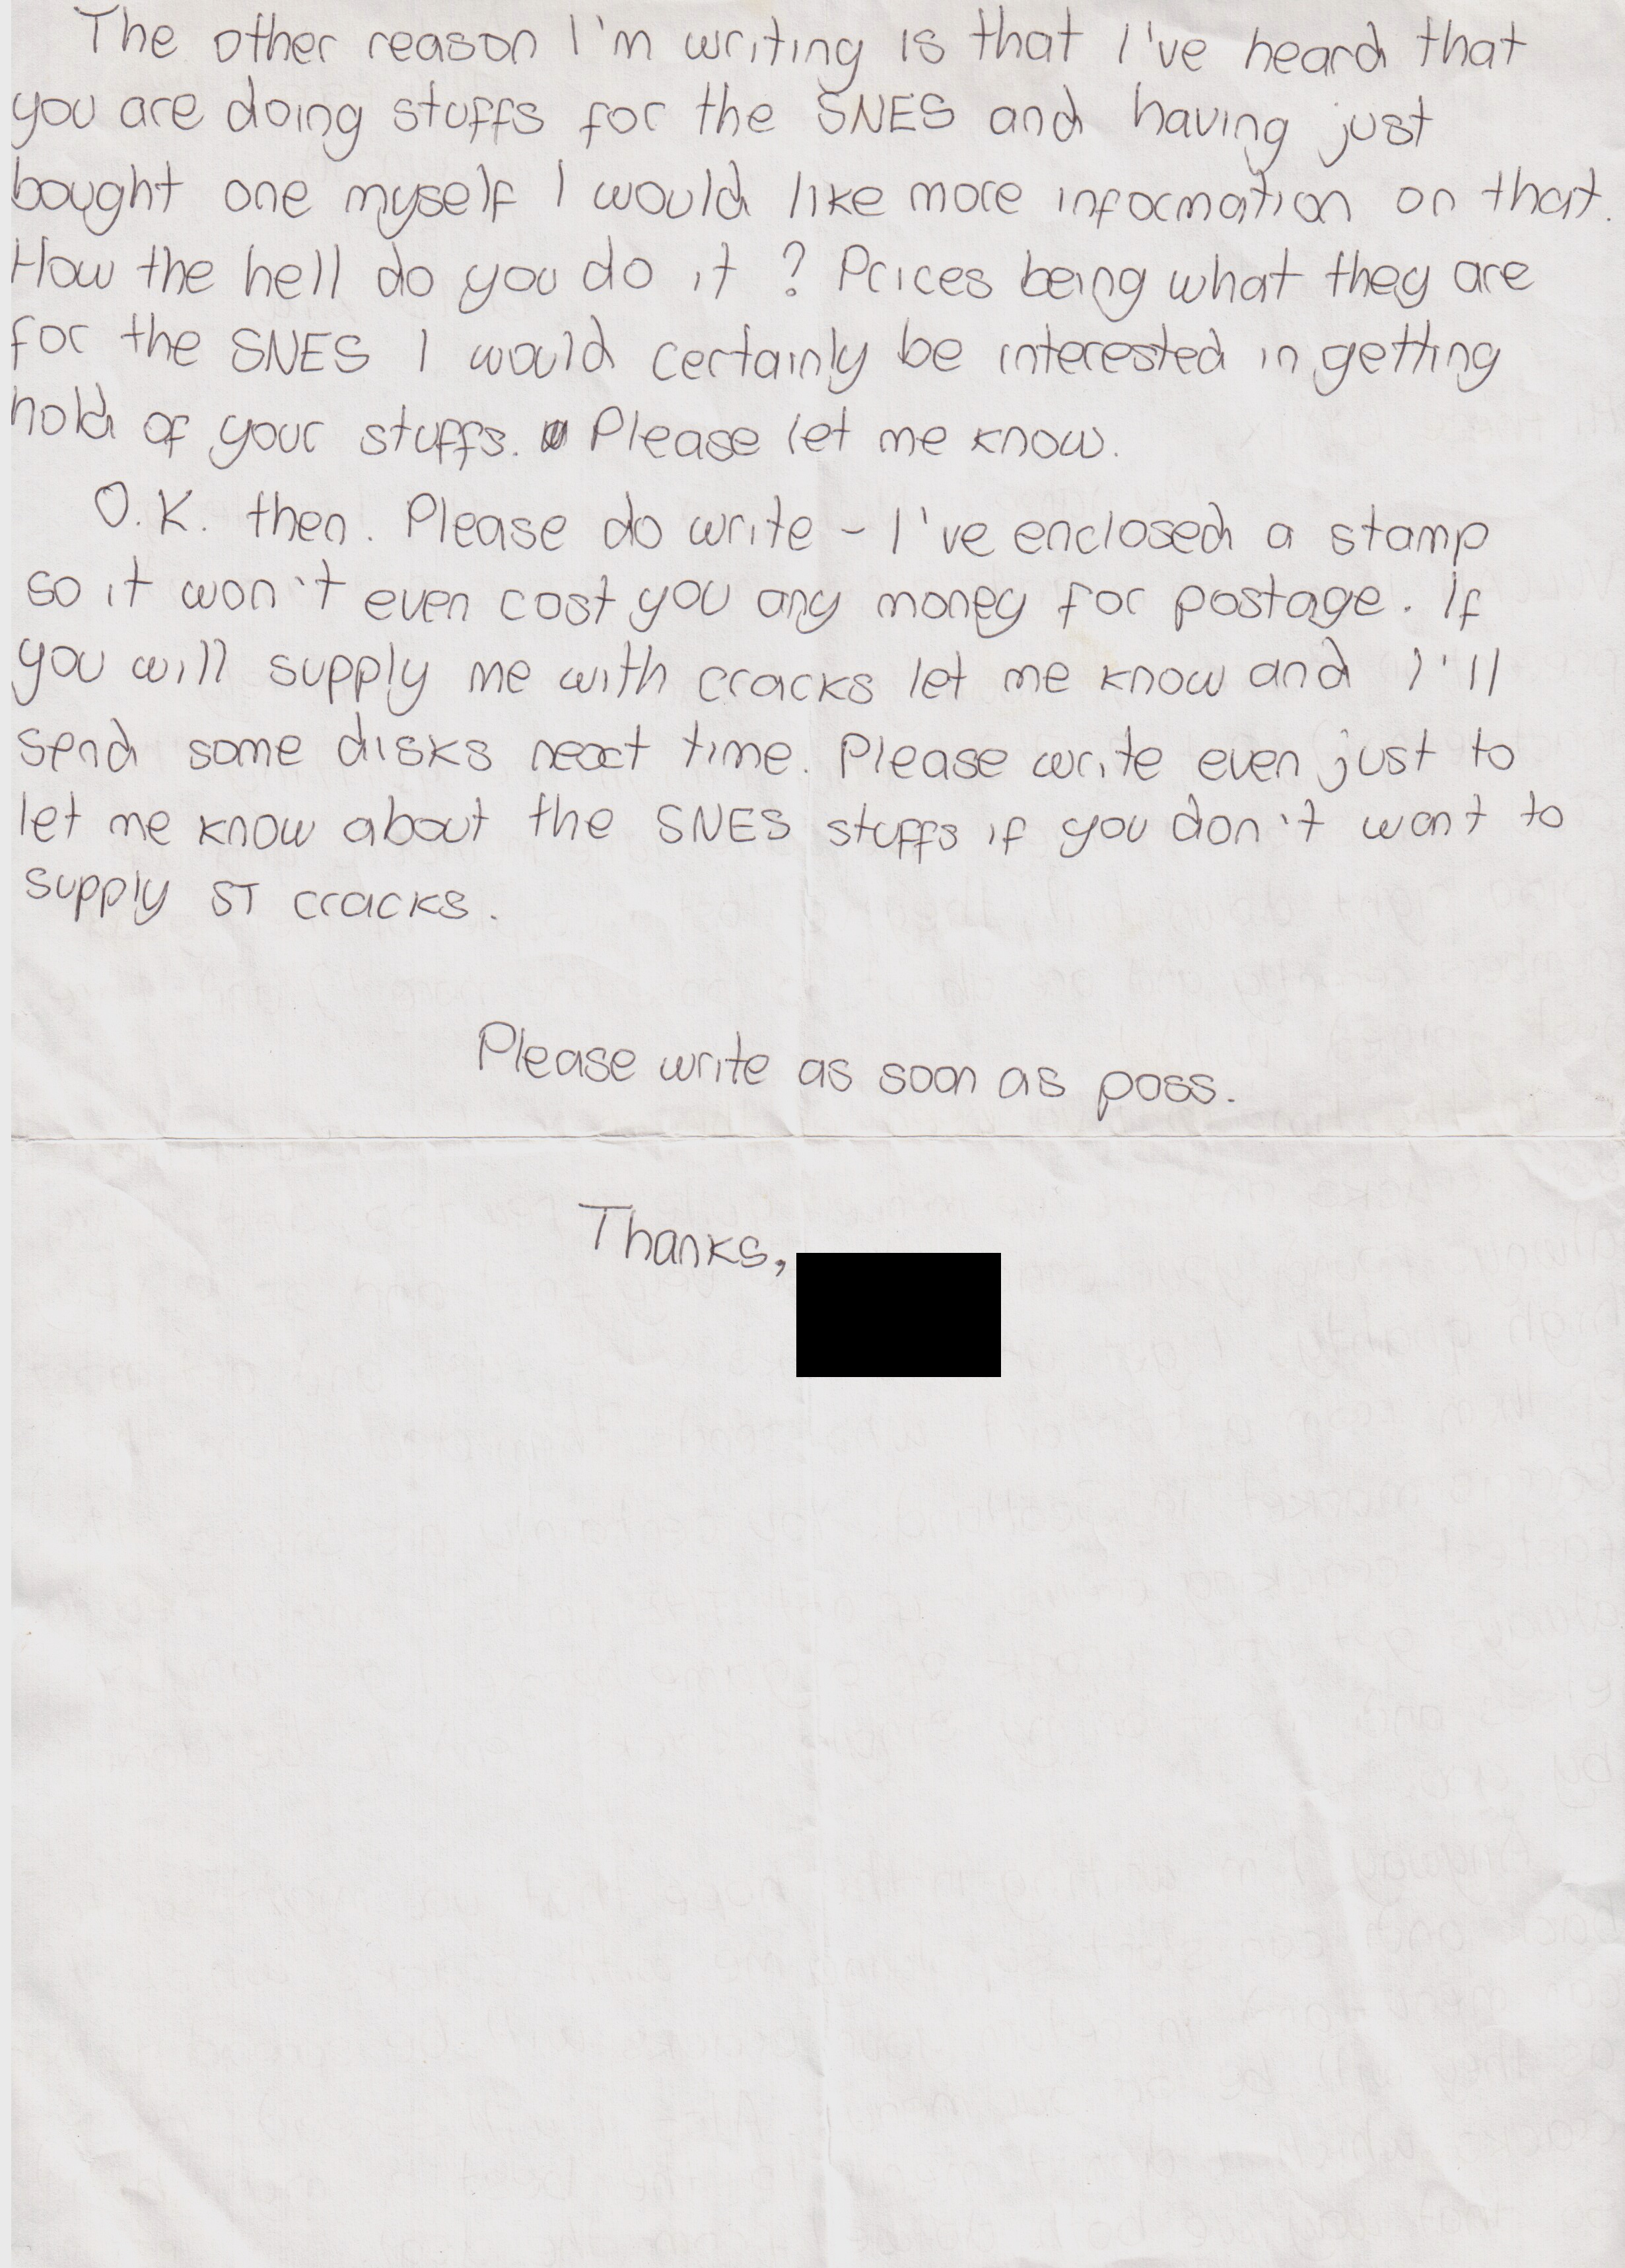 The other reason I'm writing is that I've heard that
you are doing stuffs for the SNES and having just
bought one myself I would like more information on that.
How the hell do you do it ? Prices being what they are
for the SNES I would certainly be interested in getting
hold of your stuffs. Please let me know.
O.K. then. Please do write - I've enclosed a stamp
so it won't even cost you any money for postage. If
you will supply me with cracks let me know and I'll
send some disks next time. Please write even just to
let me know about the SNES stuffs if you don't want to
supply ST cracks.
Please write as soon as poss.
Thanks,